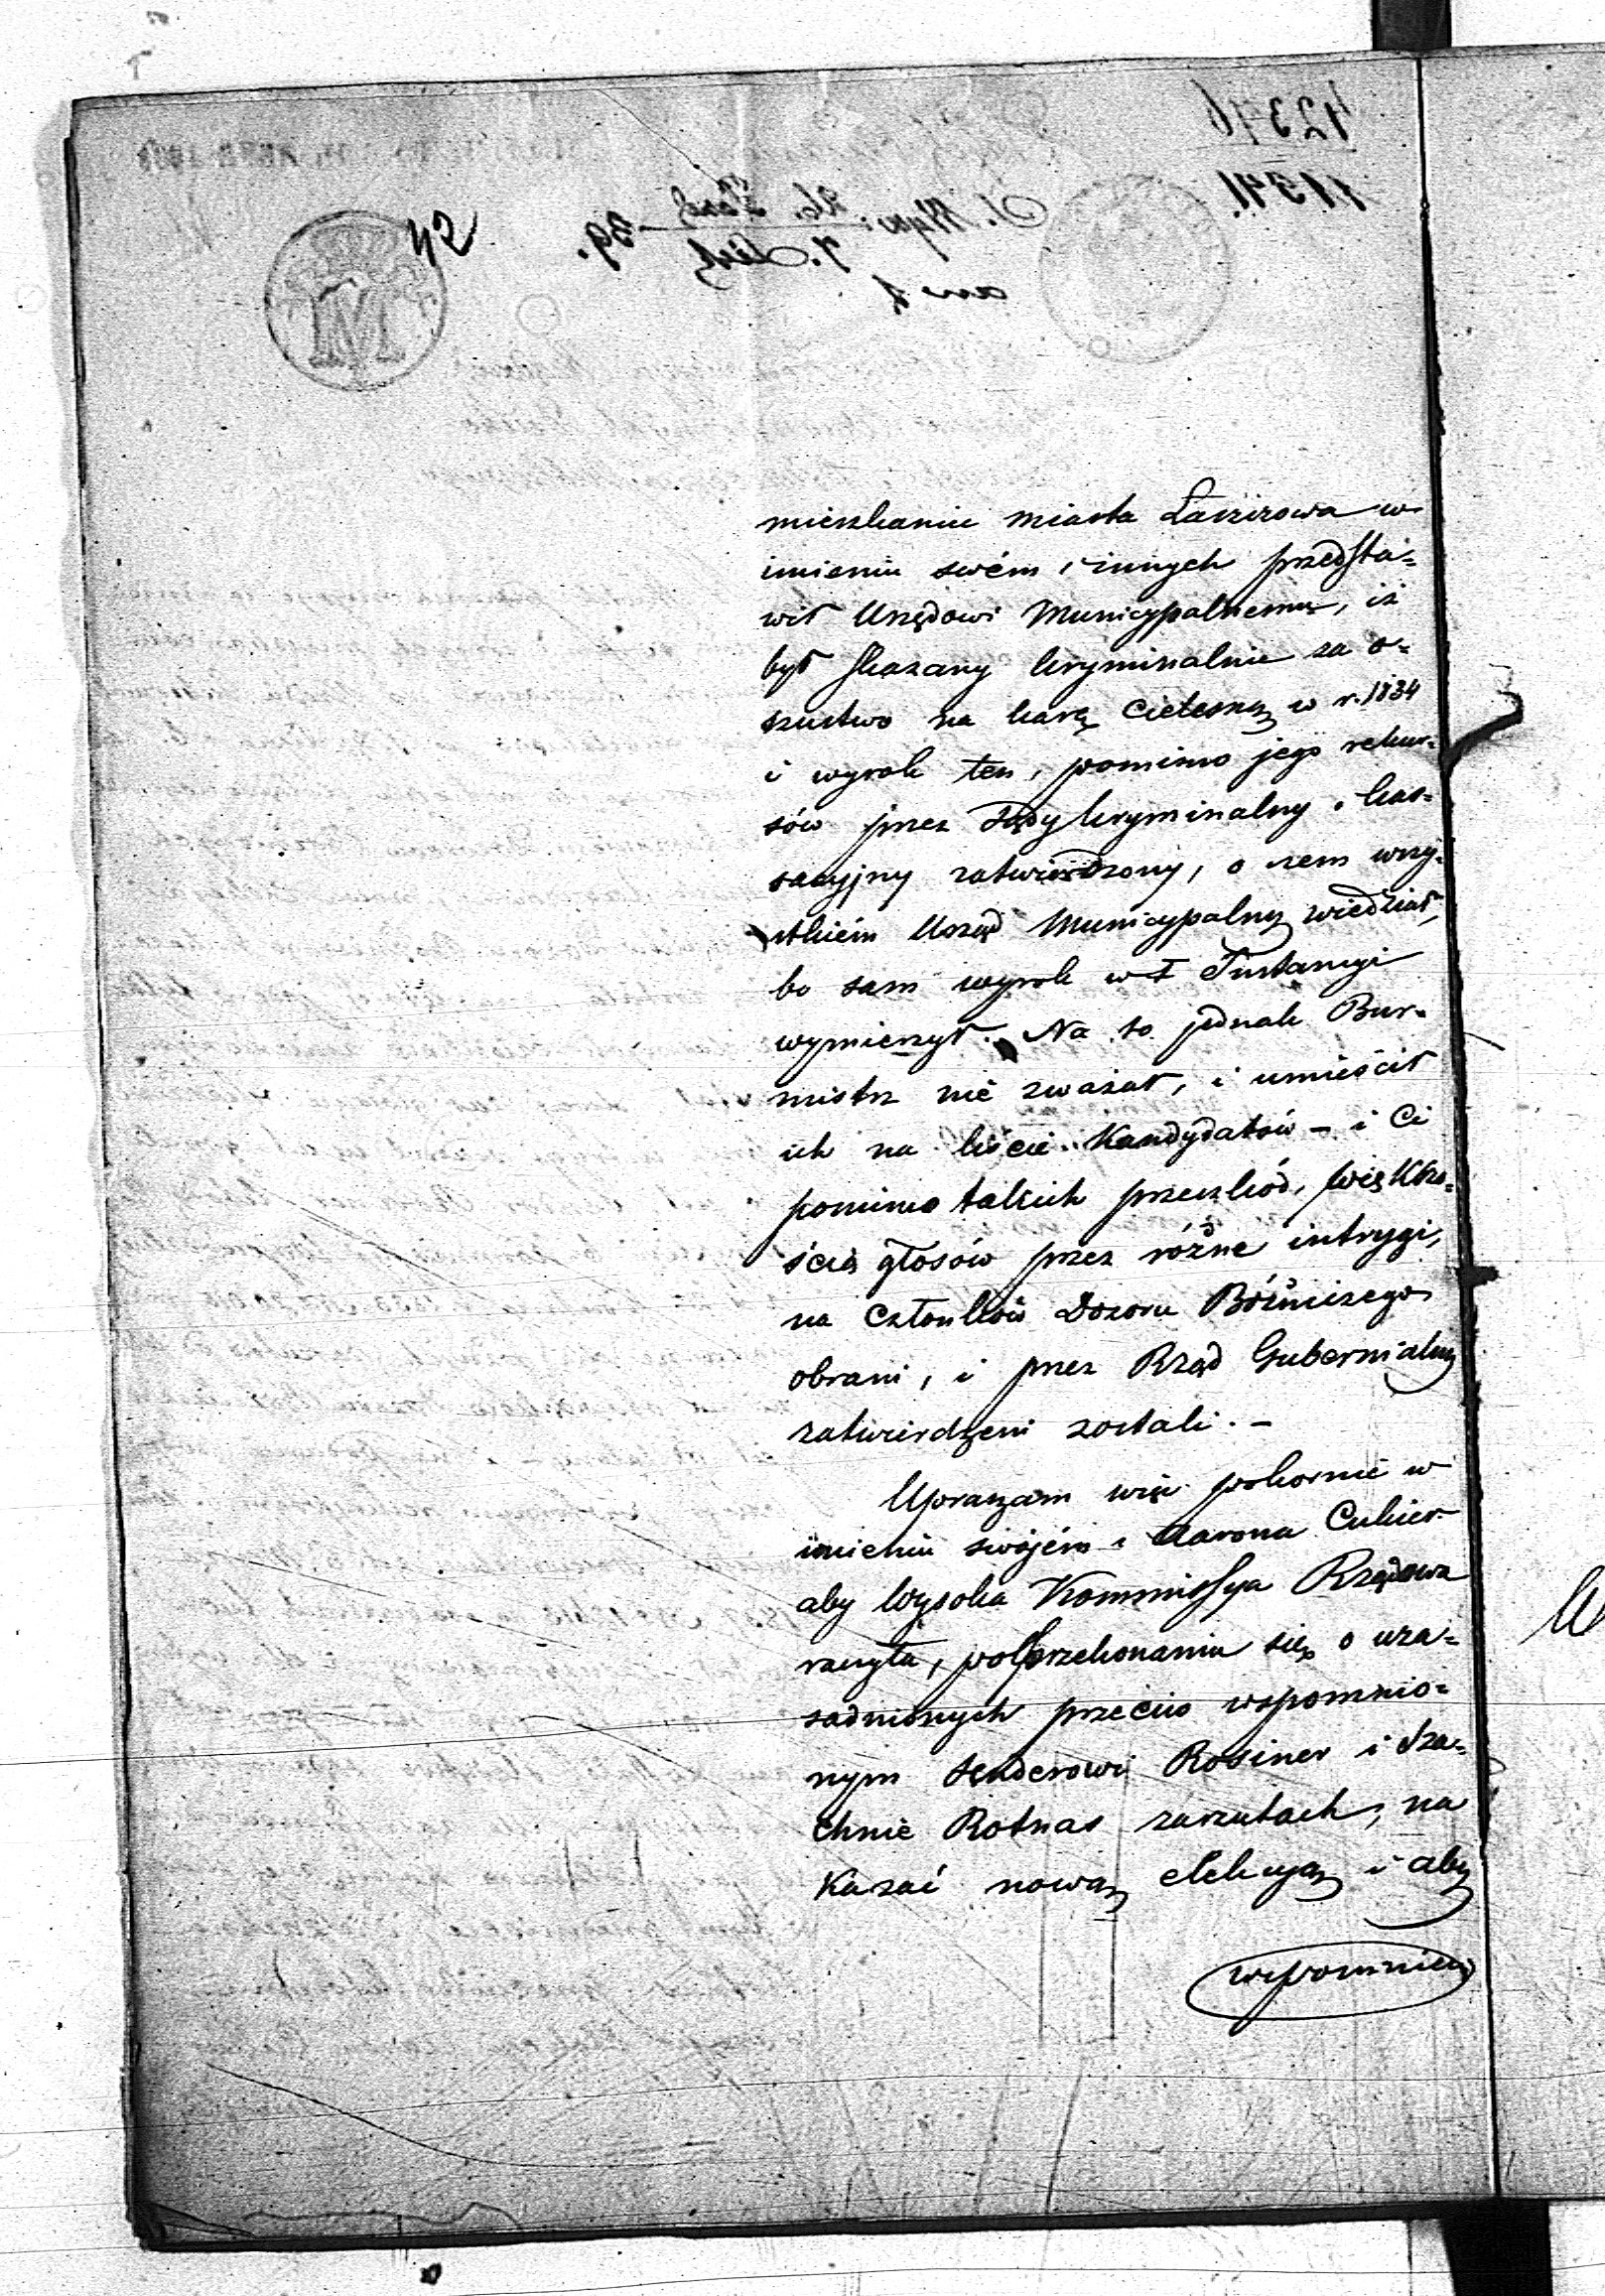 42
mieszkaniec miasta Łaszczowa w
imieniu swém i innych przedsta=
wił Urzędowi Municypalnemu, iż
był skazany kryminalnie za o=
szustwo na karę cielesną w r. 1834
i wyrok ten, pomimo jego rekur=
sów przez Sądy kryminalny i kas=
sacyjny zatwierdzony, o czem wszy=
stkiém Urząd Municypalny wiedział,
bo sam wyrok w I Instancyi
wymierzył. Na to jednak Bur=
mistrz nie zważał, i umieścił
ich na liście Kandydatów – i Ci
pomimo takich przeszkód, większo=
ścią głosów przez różne intrygi,
na Członków Dozoru Bóżniczego
obrani, i przez Rząd Gubernialny
zatwierdzeni zostali. –
Upraszam więc pokornie w
imieniu swojém i Aarona Cukier
aby Wysoka Kommissya Rządowa
raczyła, po przekonaniu się o uza=
sadnionych przeciw wspomnio=
nym Senderowi Rosiner i Sza=
chnie Rotnas zarzutach, na
kazać nową elekcyą i aby
wspomnieni